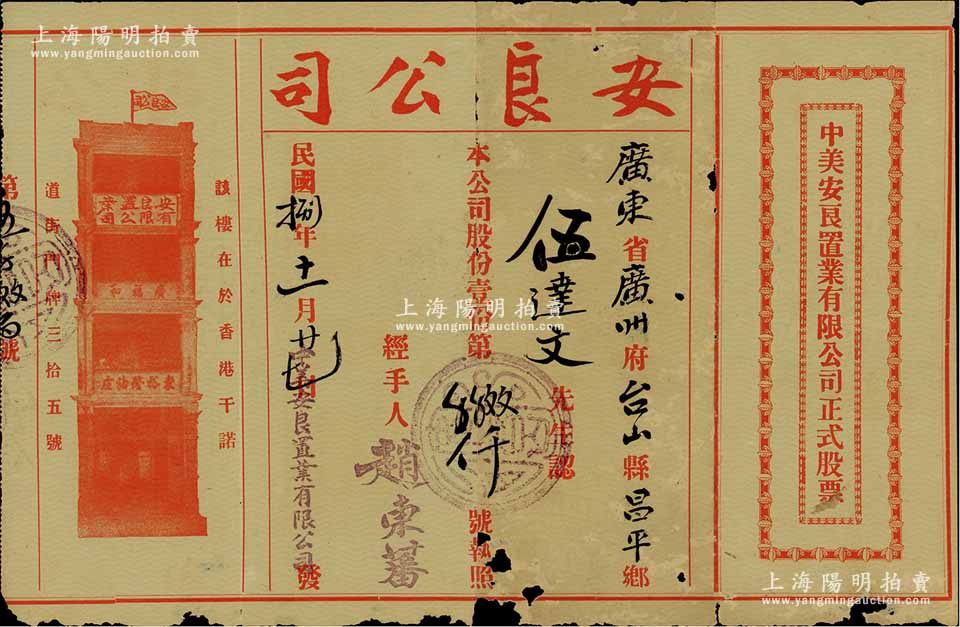 上海陽明拍賣
www.yangmingauction.com
上海陽明拍賣
www.yangmingauction.com
中美安良置業有限公司正式股票
安良公司
廣東省廣州府台山縣昌平鄉
伍達文先生認
本公司股份壹
第
號執照
經手人趙東蕃
民國捌年十一月廿七
安良置業有限公司發
該樓在於香港干諾
安良公司
安良置業
有限公司
廣福和
東裕隆油庄
道街門牌三拾五號
第
號
上海陽明拍賣
www.yangmingauction.com
上海陽明拍賣
www.yangmingauction.com